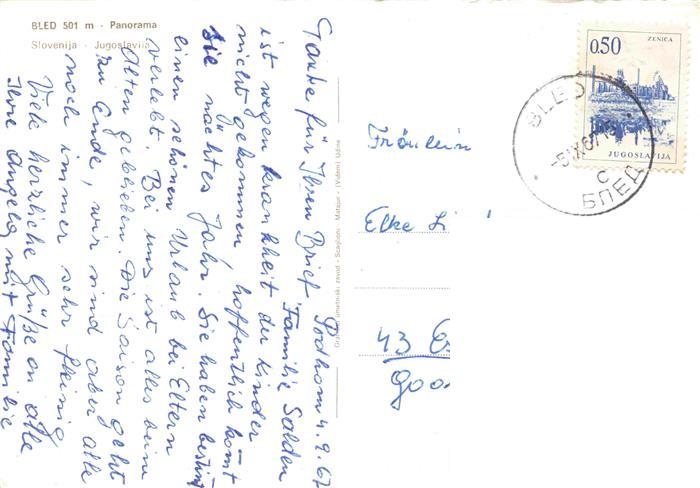 BLED 501 m - Panorama
Slovenija - Jugoslavija
Podhom 4.9.67
Danke für Ihren Brief. Familie Solden
ist wegen krankheit der kinder
nicht gekommen, hoffentlich komt
sie nächtes Jahr. Sie haben bestimt
einen schönen Urlaub bei Eltern
verlebt. Bei uns ist alles beim
Alten geblieben. Die Saison geht
zu Ende, wir sind aber alle
noch immer sehr fleinig
Viele herzliche Grüße an alle
Ihre Angela mit Familie
Grafični umetniški zavod - Scaglioni - Matajur - (Videm) Udine
Fräulein
Elke Li
43 Es
Goo
0.50
ZENICA
JUGOSLAVIJA
BLED
-5.IX.67
C
БЛЕД